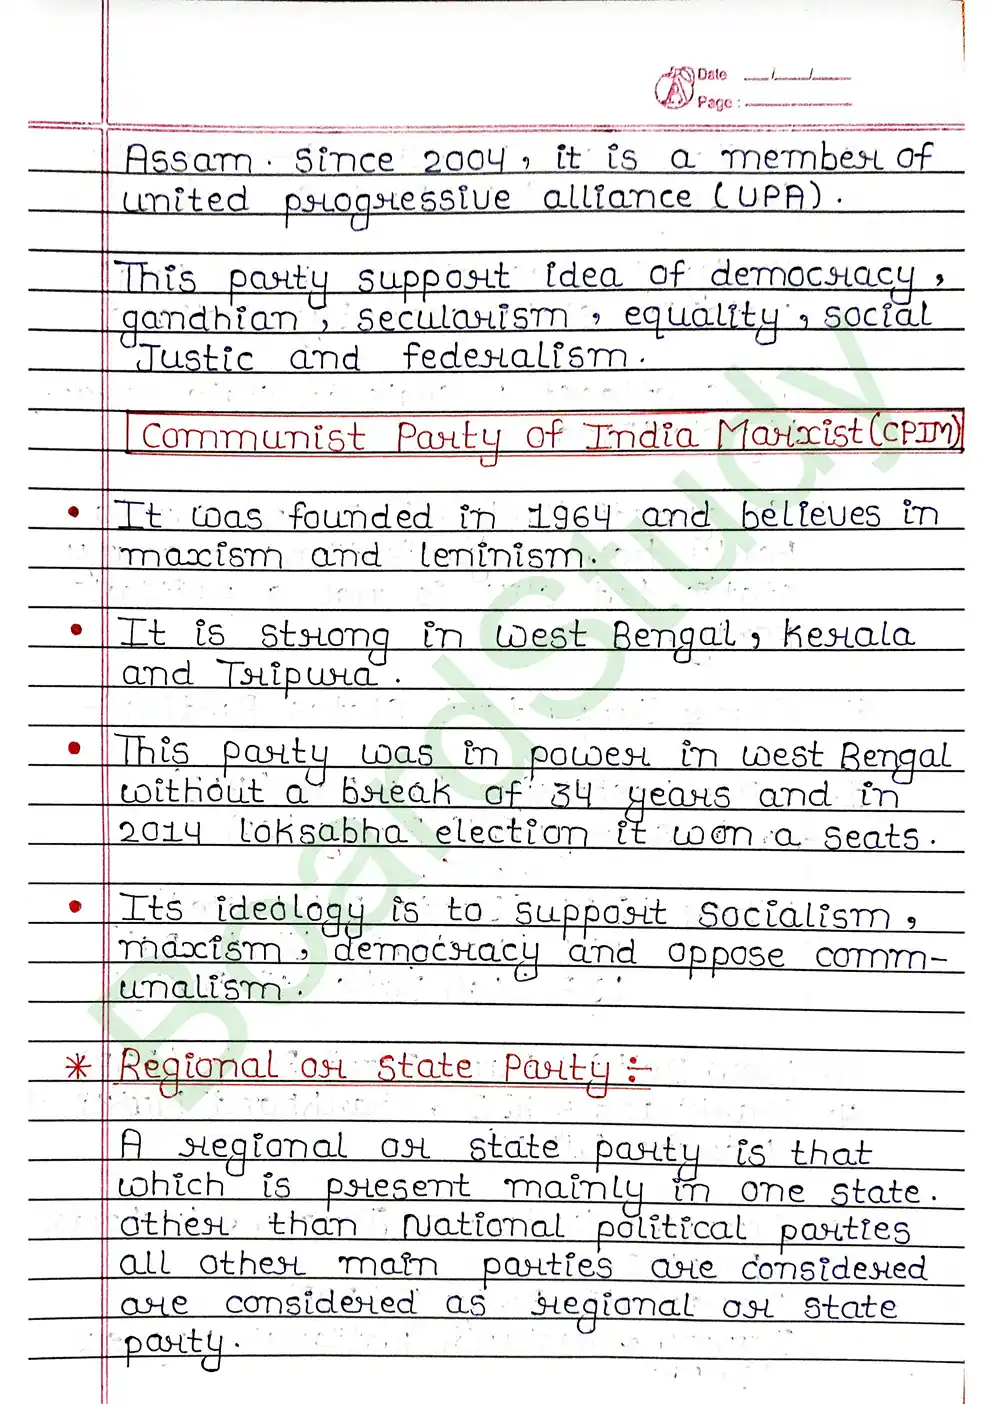 Date __/__/__
Page :
Assam. Since 2004, it is a member of
united progressive alliance (UPA).
This party support idea of democracy,
gandhian, secularism, equality, social
Justic and federalism.
Communist Party of India Marxist (CPIM)
• It was founded in 1964 and believes in
maxism and leninism.
• It is strong in West Bengal, Kerala
and Tripura.
• This party was in power in west Bengal
without a break of 34 years and in
2014 loksabha election it won a seats.
• Its ideology is to support Socialism,
maxism, democracy and oppose comm-
unalism.
* Regional or State Party ÷
A regional or state party is that
which is present mainly in one state.
other than National political parties
all other main parties are considered
are considered as regional or state
party.
BoardStudy